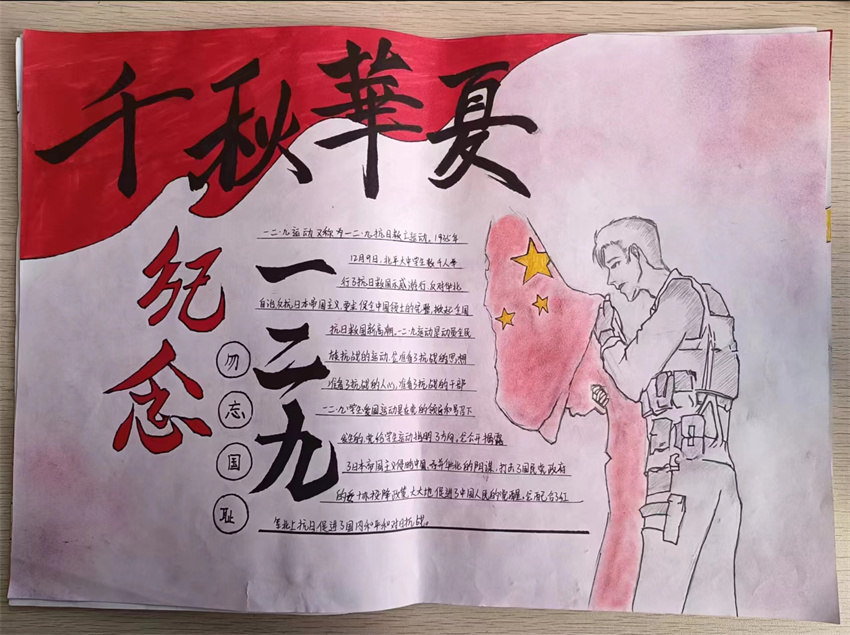 千秋華夏
纪念
一二九
勿忘国耻
一二·九运动又称为一二·九抗日救亡运动。1935年
12月9日,北平大中学生数千人举
行了抗日救国示威游行,反对华北
自治,反抗日本帝国主义,要求保全中国领土的完整,掀起全国
抗日救国新高潮。一二·九运动是动员全民
族抗战的运动,它准备了抗战的思想
准备了抗战的人心,准备了抗战的干部
一二·九学生爱国运动是在党的领导和号召下
发生的,党给学生运动指明了方向,它公开揭露
了日本帝国主义侵略中国,吞并华北的阴谋,打击了国民党政府
的妥协投降政策,大大地促进了中国人民的觉醒,它配合了红
军北上抗日,促进了国内和平和对日抗战。